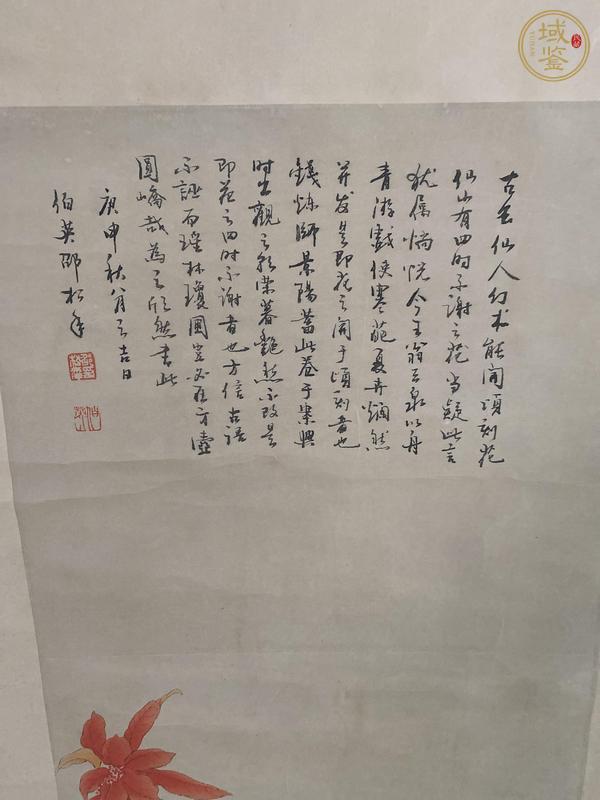 古云仙人幻术能开顷刻花
仙山有四时不谢之花尝疑此言
犹属惝怳今王翁石泉以丹
青游戏使寒葩夏卉烂然
并发是即花之开于顷刻者也
钱炼师景阳蓄此卷于
时坐观之朝荣暮艳愁不改是
即花之四时不谢者也方信古语
不诬而瑶林琼圃岂必在方壶
圆峤哉为之欣然书此
庚申秋八月之吉日
伯英邵松年
域鉴
YUJIAN